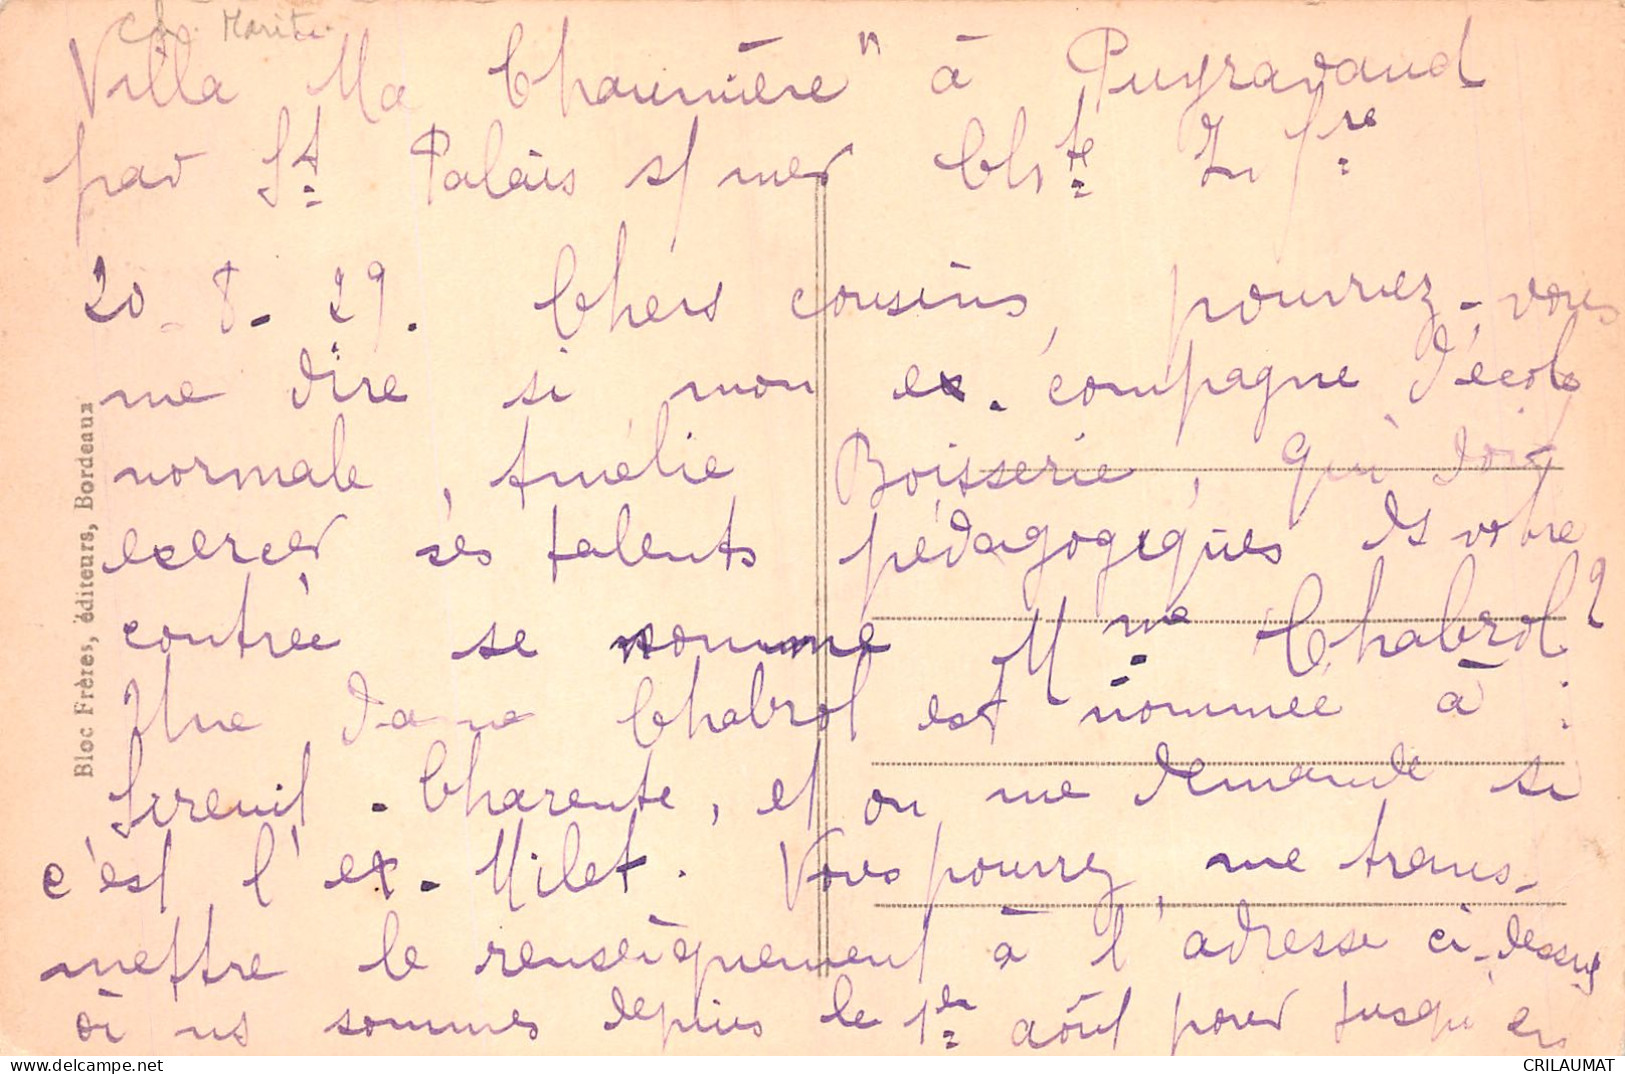 Ch. Marit.
Villa Ma Chaumière" à Puyravaud
par St Palais s/ mer Chte Infre
20 - 8 - 29. Chers cousins, pourriez-vous
me dire si mon ex-compagne d'école
normale, Amélie Boisserie, qui doit
exercer ses talents pédagogiques ds votre
contrée se nomme Mme Chabrol?
Une dame Chabrol est nommée à :
Sireuil - Charente, et on me demande si
c'est l'ex-Milet. Vous pourrez, me trans-
mettre le renseignement à l'adresse ci-dessus
où ns sommes depuis le 1er août pour jusqu'en
Bloc Frères, éditeurs, Bordeaux
CRILAUMAT